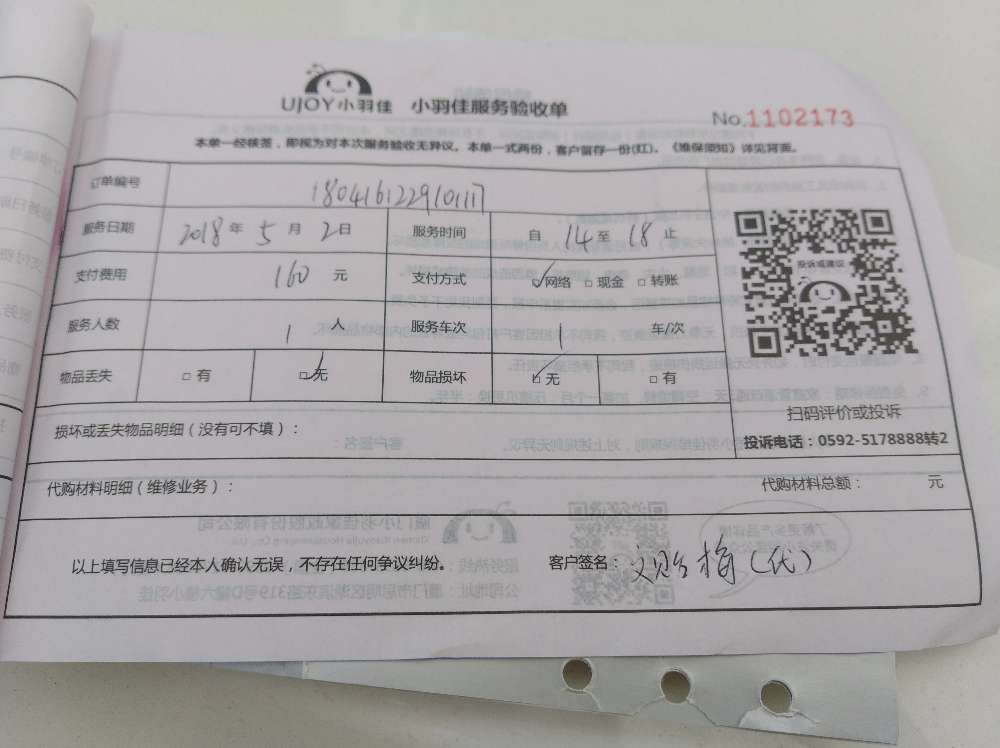 UJOY小羽佳 小羽佳服务验收单
No.1102173
本单一经核签，即视为对本次服务验收无异议。本单一式两份，客户留存一份(红)。《维保须知》详见背面。
订单编号 180416122910117
服务日期 2018年5月2日 服务时间 自14至18止
支付费用 160元 支付方式 ☑网络 □现金 □转账
服务人数 1人 服务车次 1 车/次
物品丢失 □有 ☑无 物品损坏 ☑无 □有
投诉或建议
扫码评价或投诉
投诉电话：0592-5178888转2
损坏或丢失物品明细（没有可不填）：
代购材料明细（维修业务）： 代购材料总额： 元
以上填写信息已经本人确认无误，不存在任何争议纠纷。 客户签名： 梅(代)